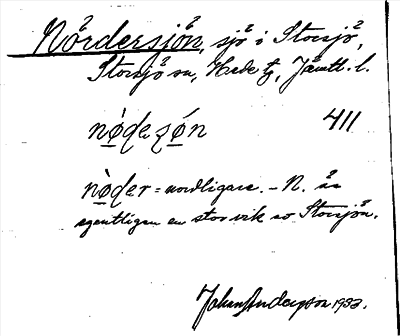 Nördersjön, sjö i Storsjö,
Storsjö sn, Hede tg, Jämtl. l.
nø̀deʂø̀n 411
nø̀der = nordligare. - N. är
egentligen en stor vik av Storsjön.
Johan Anderzon 1933.